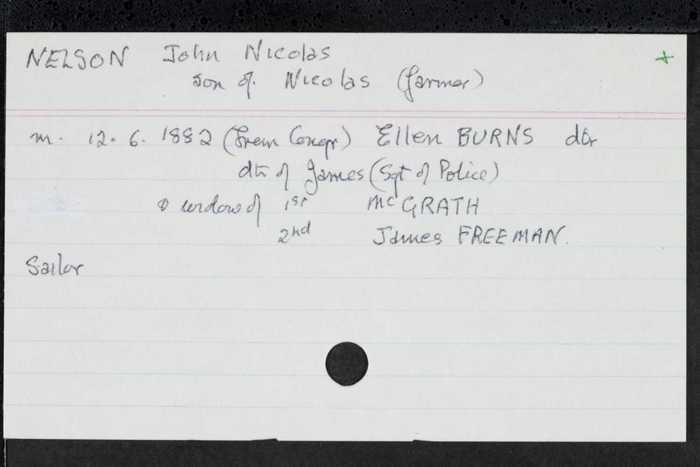 NELSON John Nicolas +
son of Nicolas (farmer)
m. 12.6.1882 (Frem Congr) Ellen BURNS dtr
dtr of James (Sgt of Police)
& widow of 1st McGRATH
2nd James FREEMAN.
Sailor